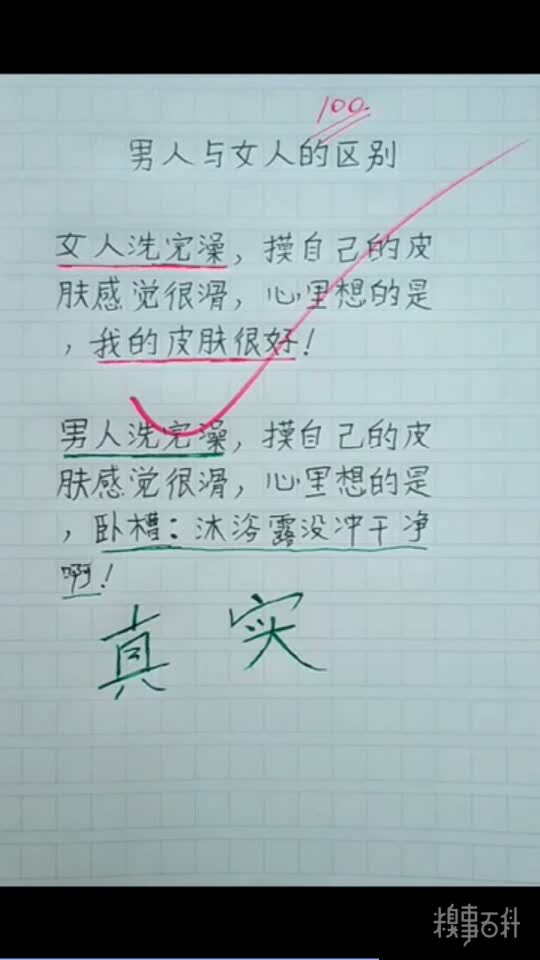 100.
男人与女人的区别
女人洗完澡，摸自己的皮
肤感觉很滑，心里想的是
，我的皮肤很好！
男人洗完澡，摸自己的皮
肤感觉很滑，心里想的是
，卧槽：沐浴露没冲干净
啊！
真实
糗事百科